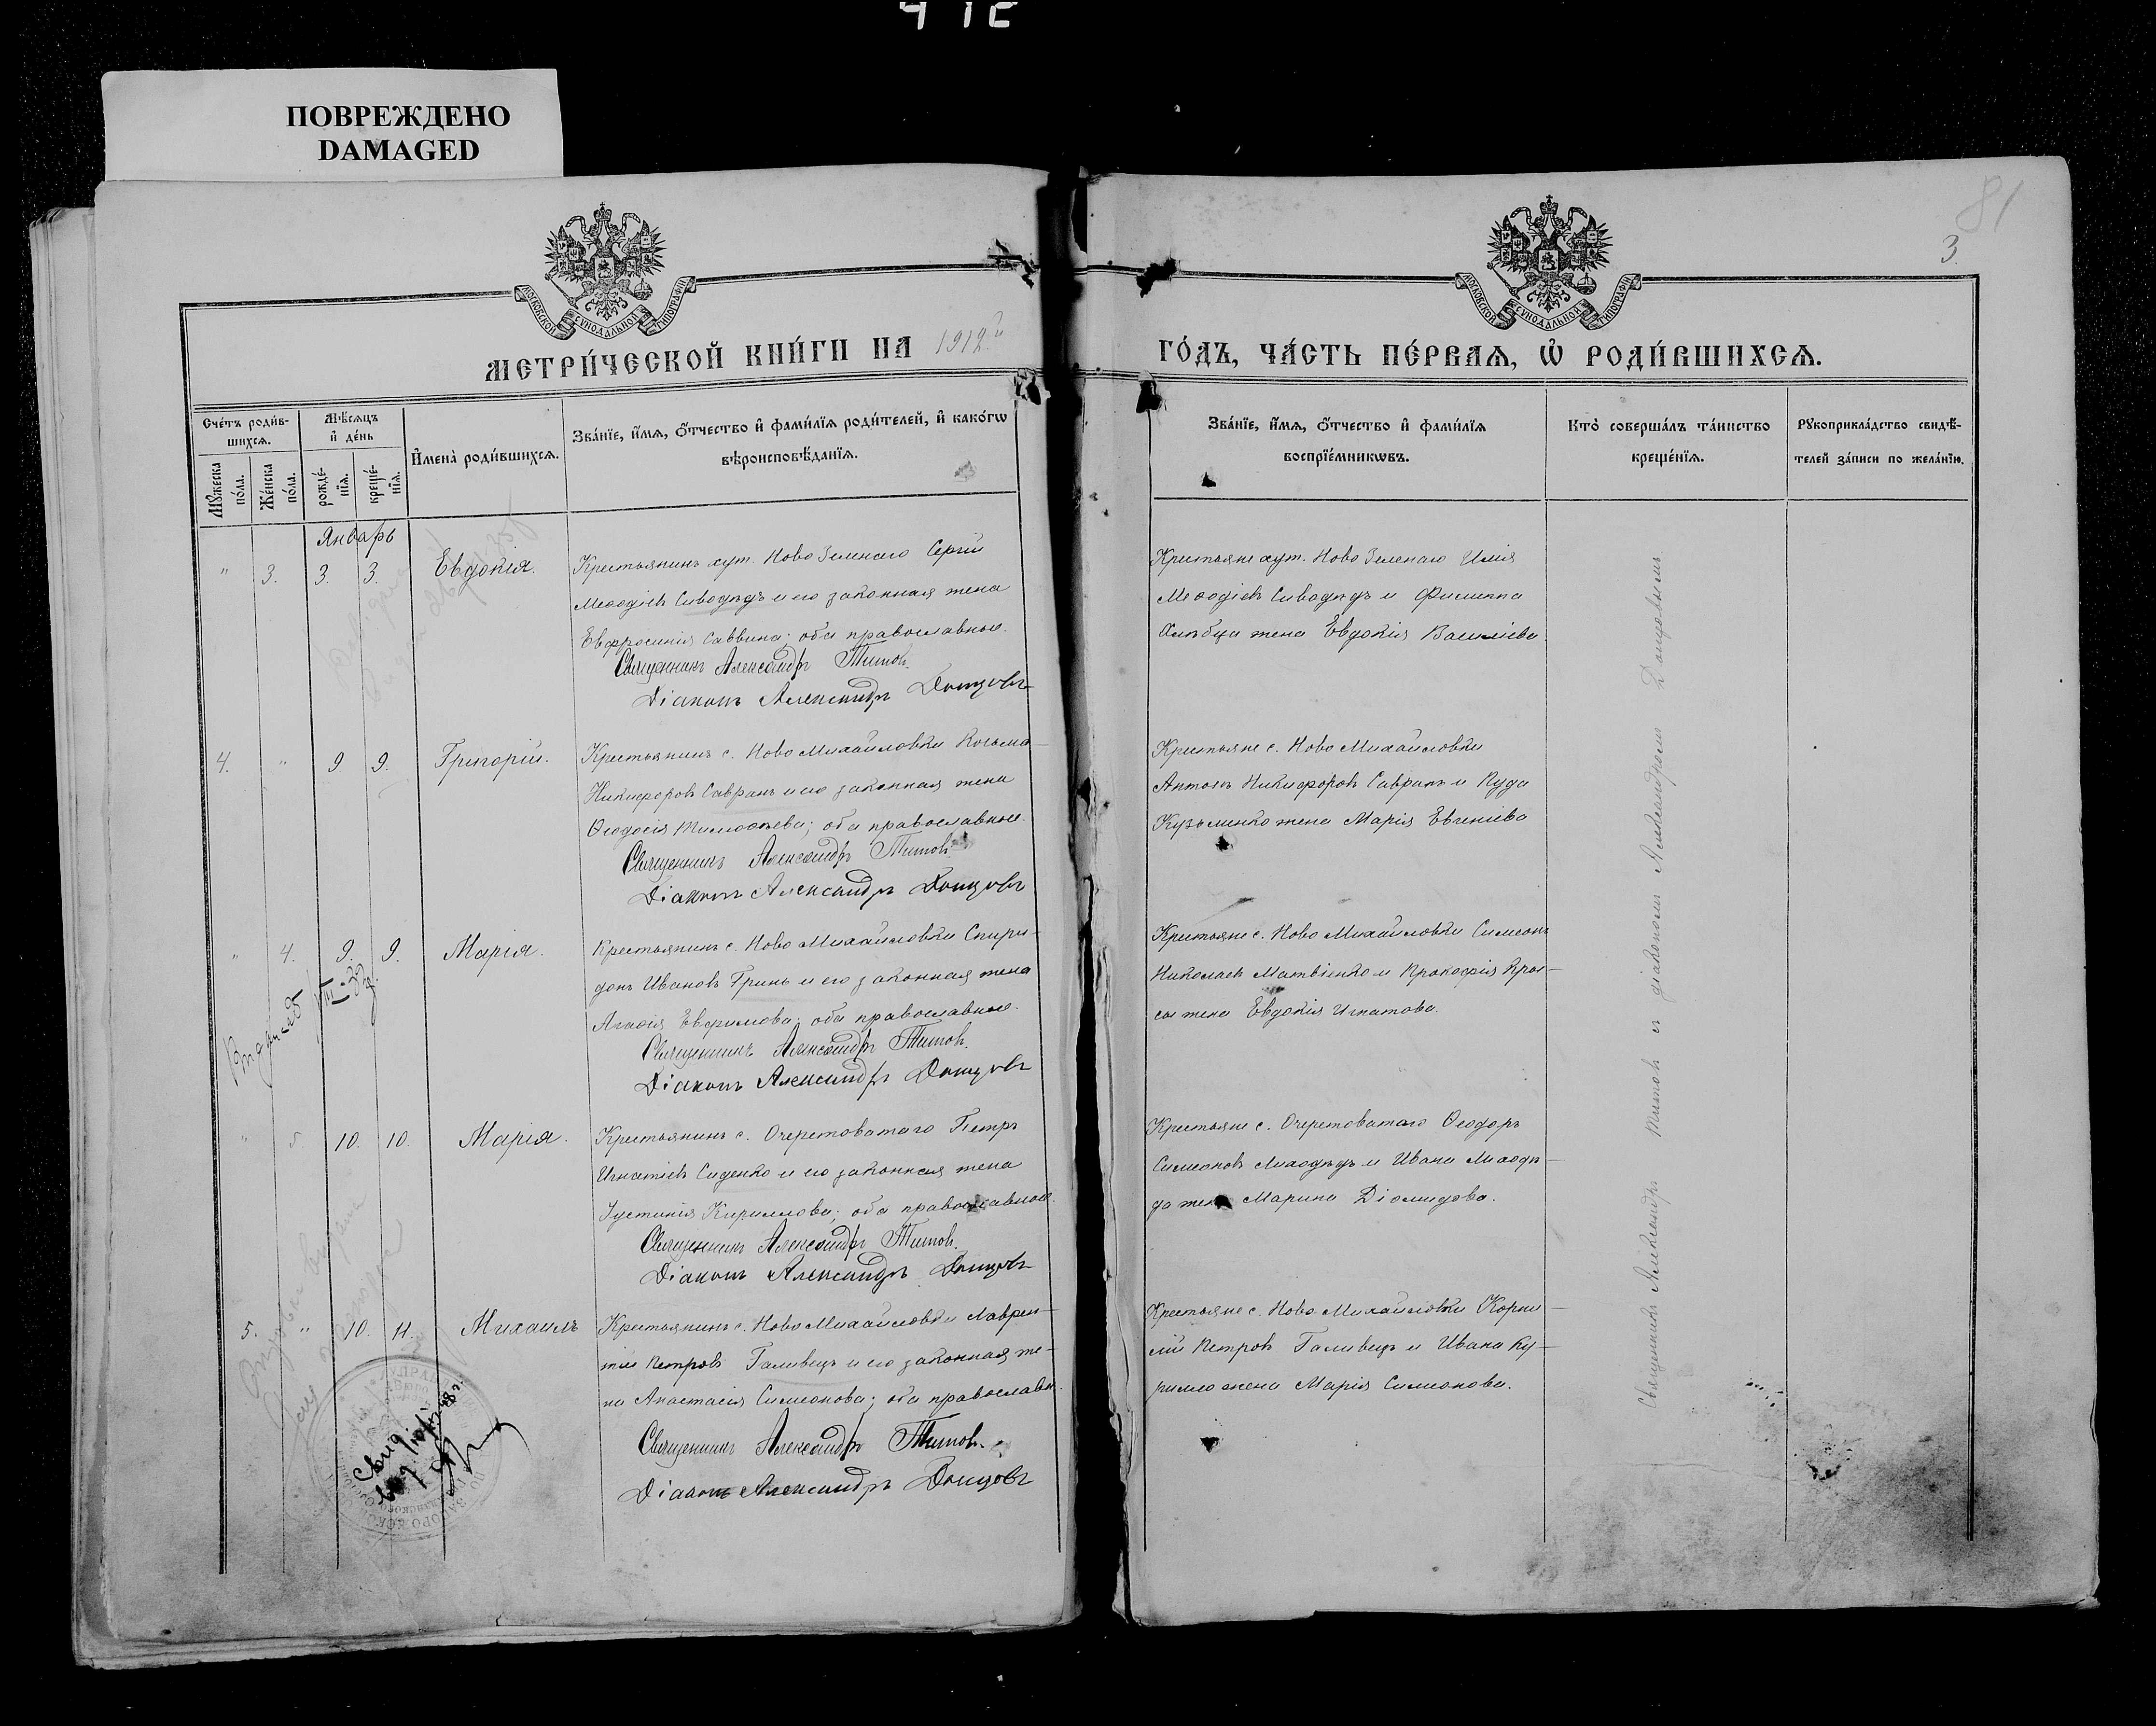 ПОВРЕЖДЕНО
DAMAGED
81
3.
МОСКОВСКОЙ СѴНОДАЛЬНОЙ ТИПОГРАФІИ
МОСКОВСКОЙ СѴНОДАЛЬНОЙ ТИПОГРАФІИ
МЕТРИ́ЧЕСКОЙ КНИ́ГИ НА 1912й ГО́ДЪ, ЧА́СТЬ ПЕ́РВАѦ, Ѡ҆ РОДИ́ВШИХСѦ.
Сче́тъ роди́в-
шихсѧ.
Мꙋ́жеска по́ла.
Же́нска по́ла.
Мѣ́сѧцъ
и҆ де́нь
рожде́-
нїѧ.
креще́-
нїѧ.
И҆мена̀ роди́вшихсѧ.
Зва́нїе, и҆́мѧ, ѻ҆́тчество и҆ фами́лїѧ роди́телей, и҆ како́гѡ
вѣроисповѣ́данїѧ.
Зва́нїе, и҆́мѧ, ѻ҆́тчество и҆ фами́лїѧ
воспрїе́мникѡвъ.
Кто̀ соверша́лъ та́инство
креще́нїѧ.
Рꙋкоприкла́дство свидѣ́-
телей за́писи по жела́нїю.
Январь
" 3. 3. 3. Евдокія.
Крестьянинъ хут. Ново Зеленаго Сергій
Меѳодіевъ Сиводѣдъ и его законная жена
Евфросинія Саввина; оба православные.
Священникъ Александръ Титовъ.
Діаконъ Александръ Донцовъ
Крестьяне хут. Ново Зеленаго Илія
Меѳодіевъ Сиводѣдъ и Филиппа
Хлѣбца жена Евдокія Василіева.
4. " 9. 9. Григорій.
Крестьянинъ с. Ново Михайловки Косьма
Никифоровъ Савранъ и его законная жена
Ѳеодосія Тимоѳеева; оба православные.
Священникъ Александръ Титовъ
Діаконъ Александръ Донцовъ
Крестьяне с. Ново Михайловки
Антонъ Никифоровъ Савранъ и Іуда
Кузьменко жена Марія Евгеніева
" 4. 9. 9. Марія.
Крестьянинъ с. Ново Михайловки Спири-
донъ Ивановъ Гринь и его законная жена
Агаѳія Евфимова; оба православные.
Священникъ Александръ Титовъ.
Діаконъ Александръ Донцовъ
Крестьяне с. Ново Михайловки Симеонъ
Николаевъ Матвіенко и Прокофія
жена Евдокія Игнатова.
" 5. 10. 10. Марія.
Крестьянинъ с. Очеретоватаго Петръ
Игнатіевъ Сиденко и его законная жена
Іустинія Кириллова; оба православные.
Священникъ Александръ Титовъ.
Діаконъ Александръ Донцовъ
Крестьяне с. Очеретоватаго Ѳеодоръ
Симеоновъ Лиходѣдъ и Ивана Лиходѣ-
да жена Марина Діомидова.
5. " 10. 11. Михаилъ
Крестьянинъ с. Ново Михайловки Лаврен-
тій Петровъ Галивецъ и его законная же-
на Анастасія Симеонова; оба православн.
Священникъ Александръ Титовъ.
Діаконъ Александръ Донцовъ
Крестьяне с. Ново Михайловки Корни-
лій Петровъ Галивецъ и Ивана Ку-
рилло жена Марія Симеонова.
Священникъ Александръ Титовъ и діакономъ Александромъ Донцовымъ